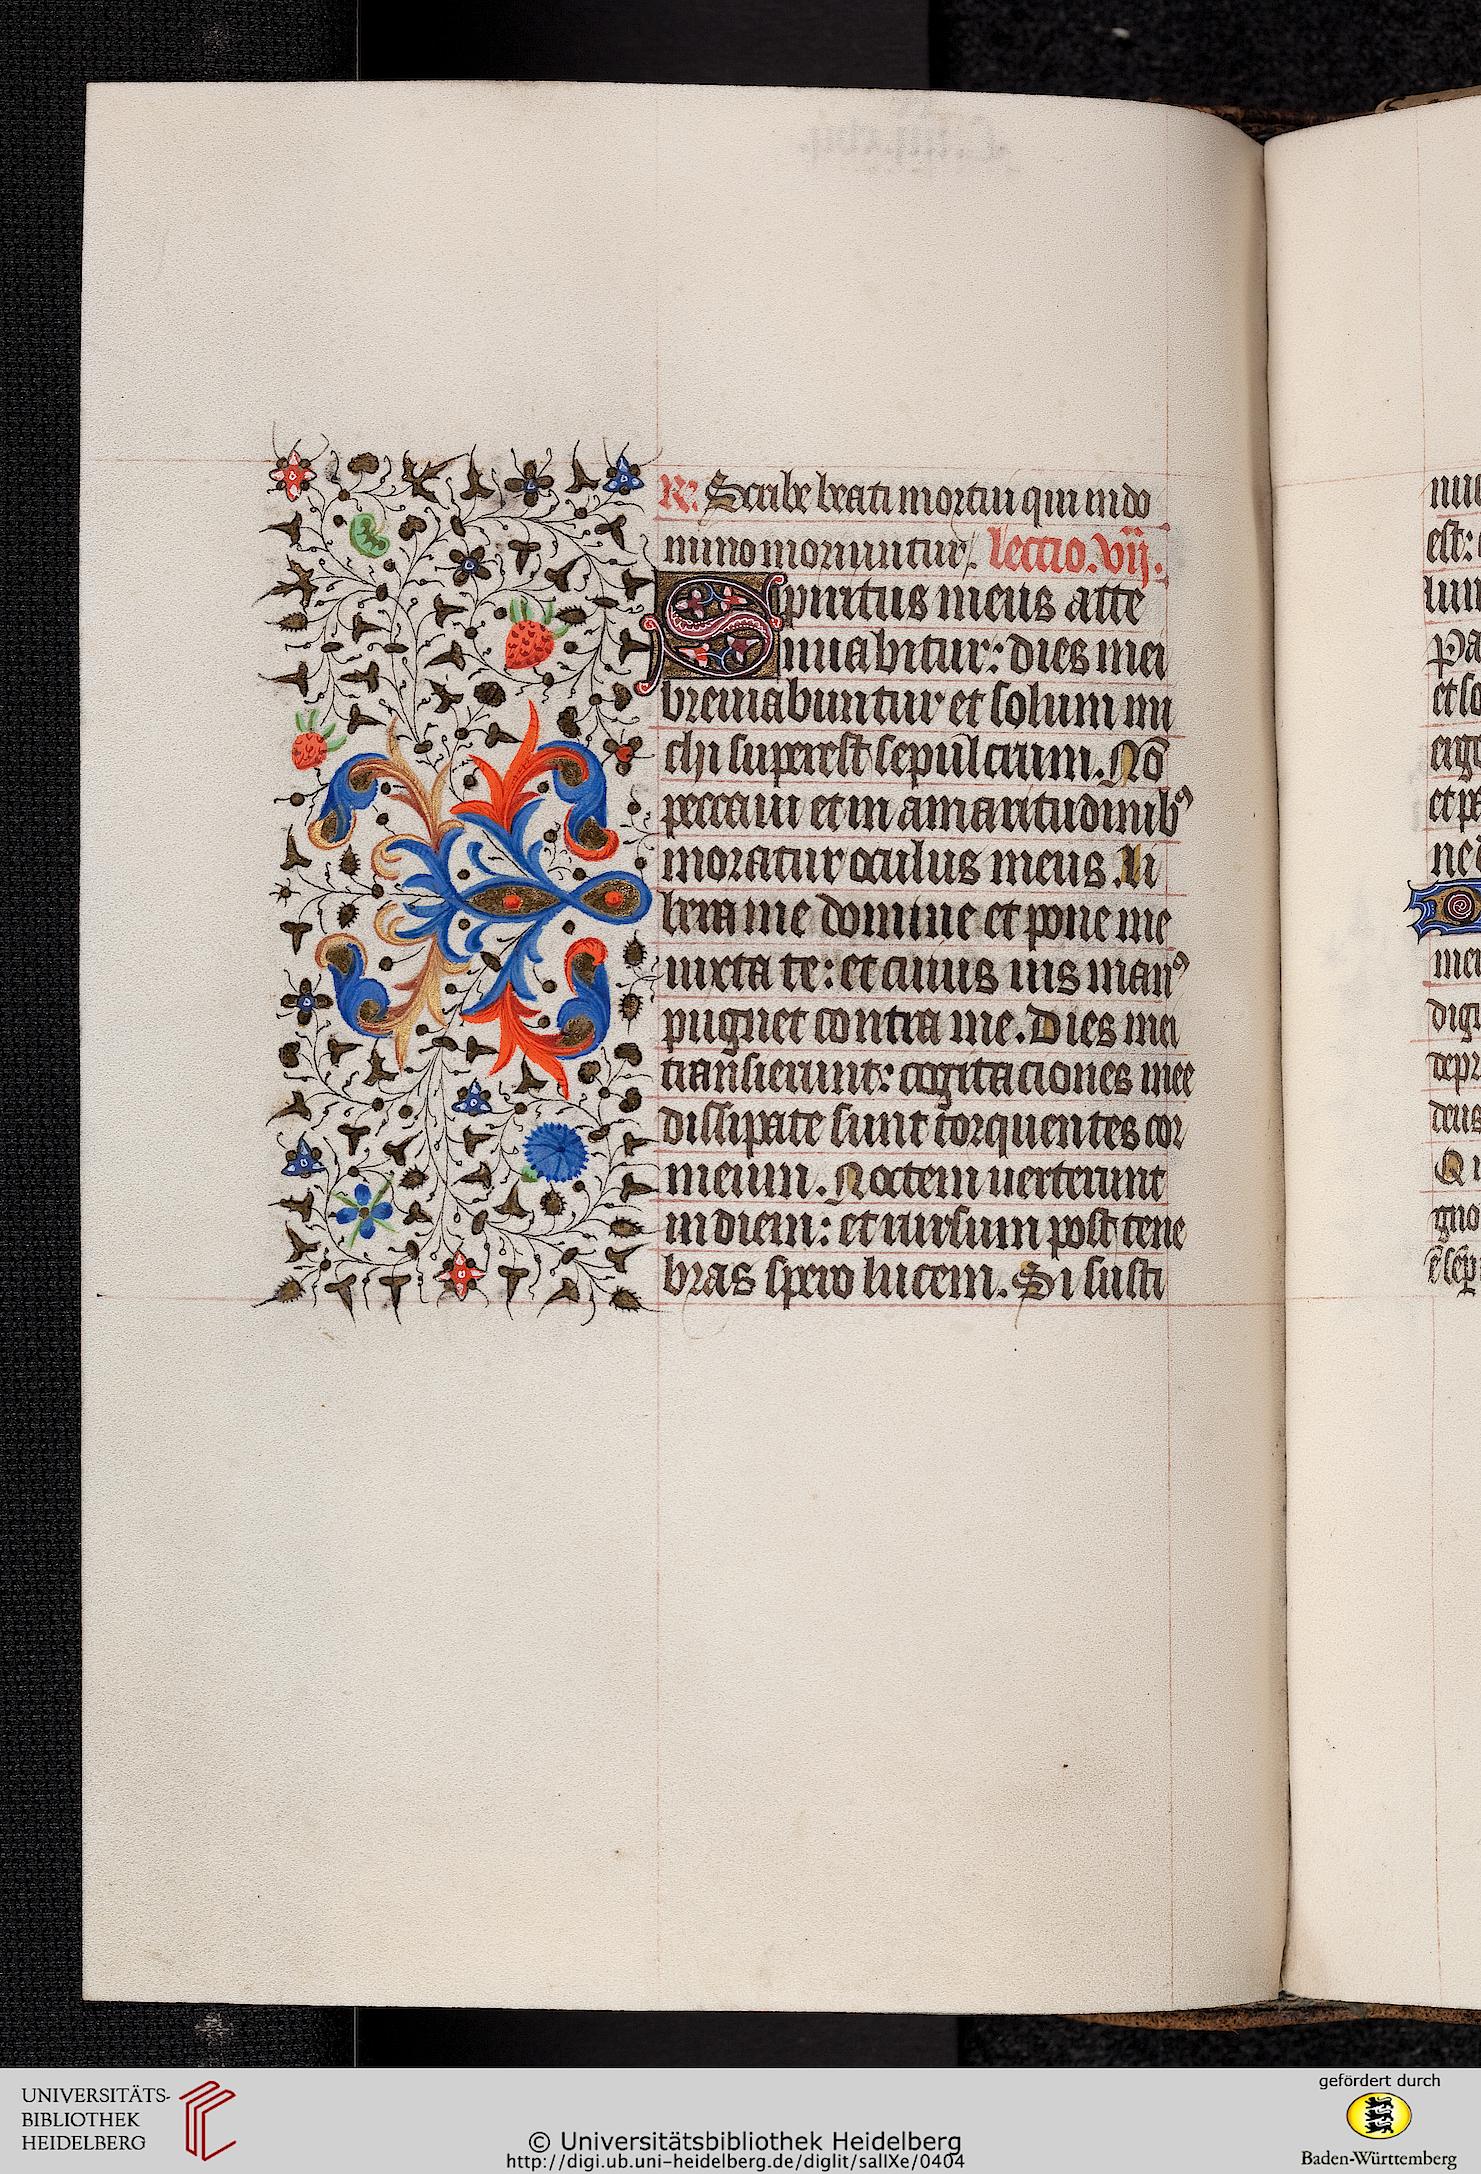 R. Scribe beati mortui qui in do
mino moriuntur. lectio. vij.
Spiritus meus atte
nuabitur: dies mei
breuiabuntur et solum mi
chi superest sepulcrum. No
peccaui et in amaritudinib9
moratur oculus meus. Li
bera me domine et pone me
iuxta te: et cuius uis man9
pugnet contra me. Dies mei
transierunt: cogitaciones mee
dissipate sunt torquentes cor
meum. Noctem uerterunt
in diem: et rursum post tene
bras spero lucem. Si susti
UNIVERSITÄTS-
BIBLIOTHEK
HEIDELBERG
© Universitätsbibliothek Heidelberg
http://digi.ub.uni-heidelberg.de/diglit/salIXe/0404
gefördert durch
Baden-Württemberg